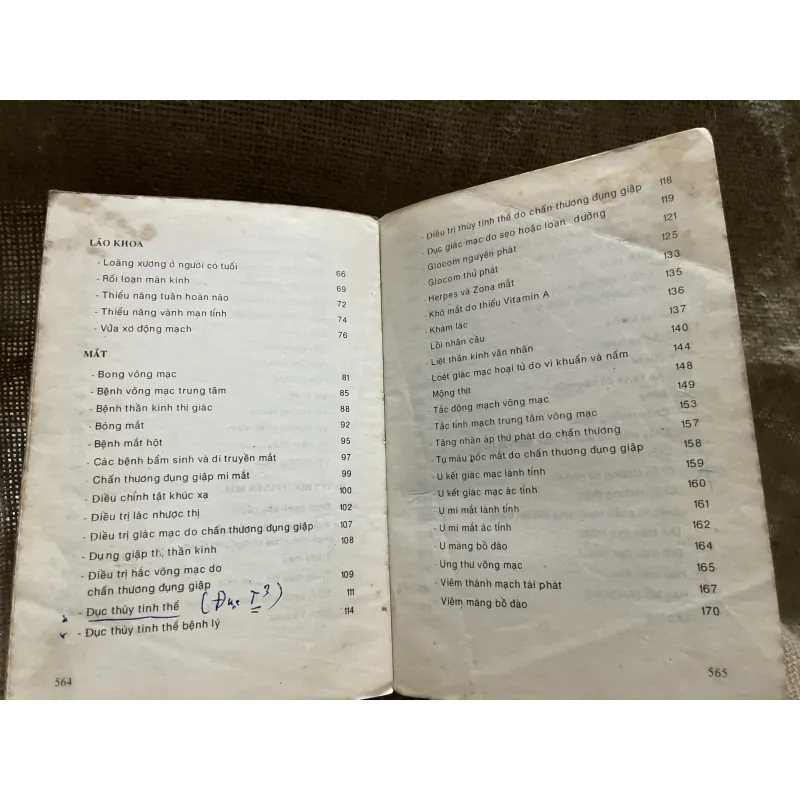 LÃO KHOA
- Loãng xương ở người có tuổi 66
- Rối loạn mãn kinh 69
- Thiểu năng tuần hoàn não 72
- Thiểu năng vành mạn tính 74
- Vữa xơ động mạch 76
MẮT
- Bong võng mạc 81
- Bệnh võng mạc trung tâm 85
- Bệnh thần kinh thị giác 88
- Bỏng mắt 92
- Bệnh mắt hột 95
- Các bệnh bẩm sinh và di truyền mắt 97
- Chấn thương đụng giập mi mắt 99
- Điều chỉnh tật khúc xạ 100
- Điều trị lác nhược thị 102
- Điều trị giác mạc do chấn thương đụng giập 107
- Đụng giập th. thần kinh 108
- Điều trị hắc võng mạc do
chấn thương đụng giập 109
- Đục thủy tinh thể (Đục T3) 111
- Đục thủy tinh thể bệnh lý 114
564
- Điều trị thủy tinh thể do chấn thương đụng giập 118
- Đục giác mạc do sẹo hoặc loạn dưỡng 119
- Glocom nguyên phát 121
- Glocom thủ phát 125
- Herpes và Zona mắt 133
- Khô mắt do thiếu Vitamin A 135
- Khám lác 136
Lồi nhãn cầu 137
- Liệt thần kinh vận nhãn 140
- Loét giác mạc hoại tử do vi khuẩn và nấm 144
Mộng thịt 148
Tắc động mạch võng mạc 149
Tắc tĩnh mạch trung tâm võng mạc 153
- Tăng nhãn áp thủ phát do chấn thương 157
- Tụ máu hốc mắt do chấn thương đụng giập 158
- U kết giác mạc lành tính 159
- U kết giác mạc ác tính 160
- U mi mắt lành tính 161
- U mi mắt ác tính 162
- U màng bồ đào 164
- Ung thư võng mạc 165
- Viêm thành mạch tái phát 167
- Viêm màng bồ đào 170
565